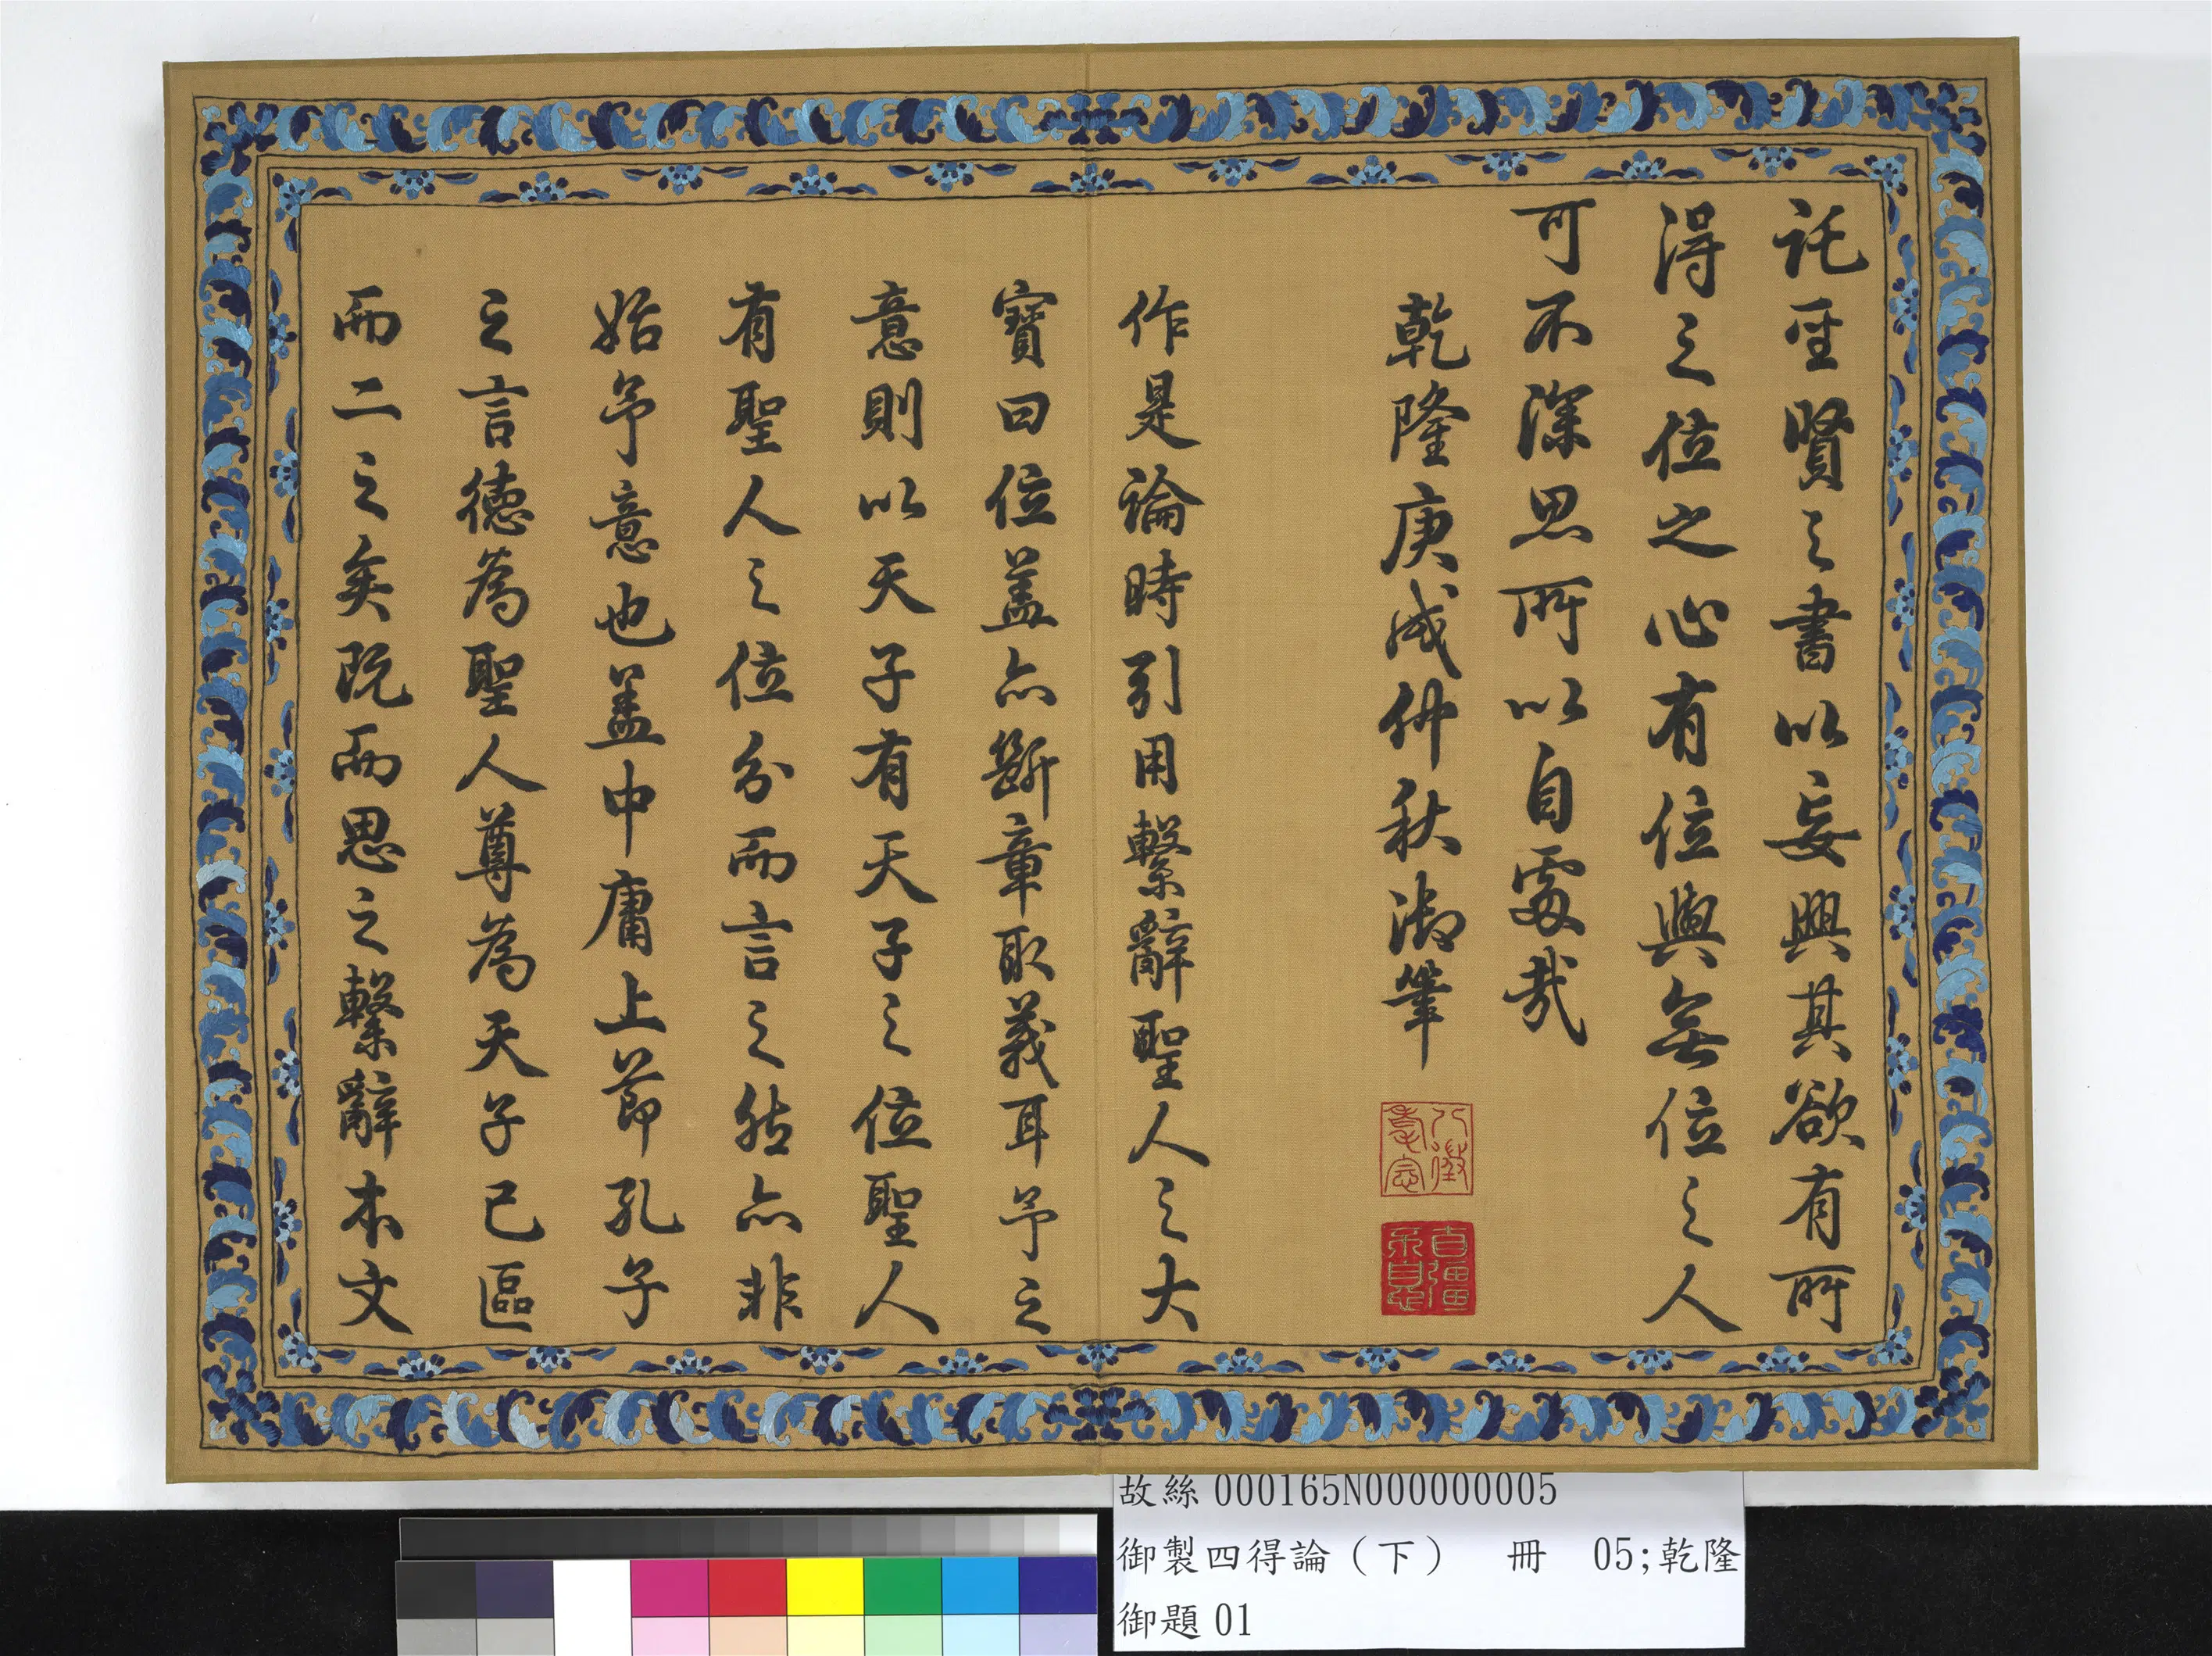 託聖賢之書以妄興其欲有所
得之位之心有位與無位之人
可不深思所以自處哉
乾隆庚戌仲秋御筆
八徵耄念
自彊不息
作是論時引用繫辭聖人之大
寶曰位盖亦斷章取義耳予之
意則以天子有天子之位聖人
有聖人之位分而言之然亦非
始予意也盖中庸上節孔子
之言德為聖人尊為天子已區
而二之矣既而思之繫辭本文
故絲000165N000000005
御製四得論（下） 冊 05;乾隆
御題01